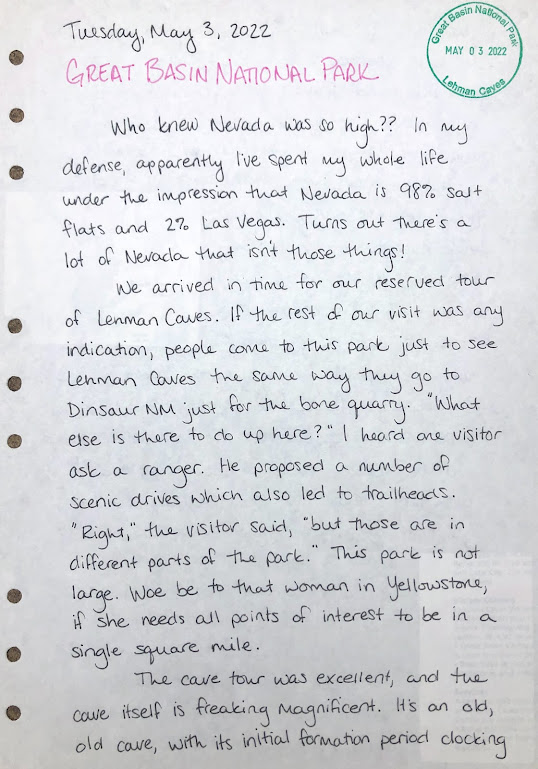 Tuesday, May 3, 2022
Great Basin National Park
MAY 03 2022
Lehman Caves
GREAT BASIN NATIONAL PARK
Who knew Nevada was so high?? In my
defense, apparently I've spent my whole life
under the impression that Nevada is 98% salt
flats and 2% Las Vegas. Turns out there's a
lot of Nevada that isn't those things!
We arrived in time for our reserved tour
of Lehman Caves. If the rest of our visit was any
indication, people come to this park just to see
Lehman Caves the same way they go to
Dinsaur NM just for the bone quarry. "What
else is there to do up here?" I heard one visitor
ask a ranger. He proposed a number of
scenic drives which also led to trailheads.
"Right," the visitor said, "but those are in
different parts of the park." This park is not
large. Woe be to that woman in Yellowstone,
if she needs all points of interest to be in a
single square mile.
The cave tour was excellent, and the
cave itself is freaking magnificent. It's an old,
old cave, with its initial formation period clocking